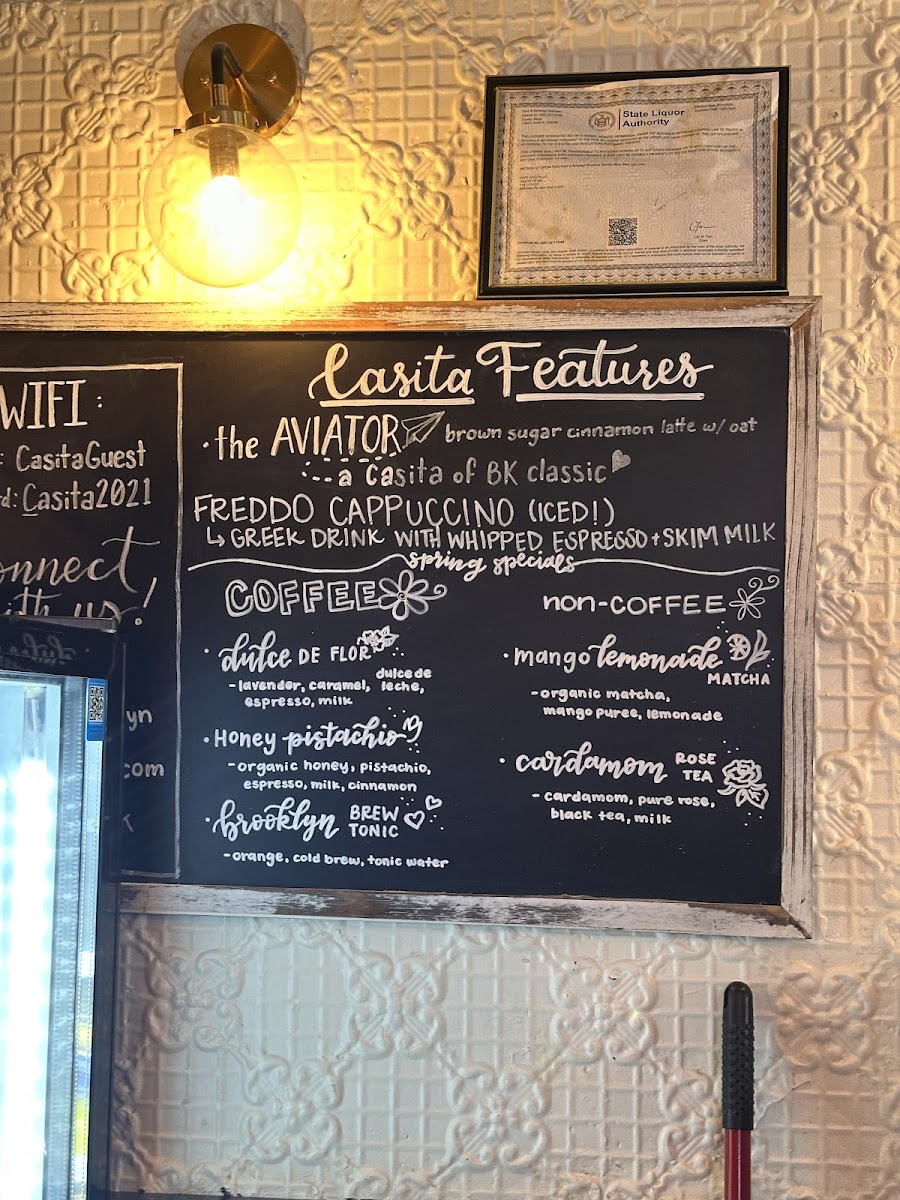 State Liquor
Authority
WIFI:
CasitaGuest
Casita2021
Casita Features
• the AVIATOR brown sugar cinnamon latte w/ oat
a Casita of BK classic
FREDDO CAPPUCCINO (ICED!)
↳ GREEK DRINK WITH WHIPPED ESPRESSO + SKIM MILK
spring specials
COFFEE
• dulce DE FLOR
- lavender, caramel, dulce de leche,
espresso, milk
• Honey pistachio
- organic honey, pistachio,
espresso, milk, cinnamon
• brooklyn BREW TONIC
- orange, cold brew, tonic water
non-COFFEE
• mango lemonade
MATCHA
- organic matcha,
mango puree, lemonade
• cardamom ROSE TEA
- cardamom, pure rose,
black tea, milk
yn
com